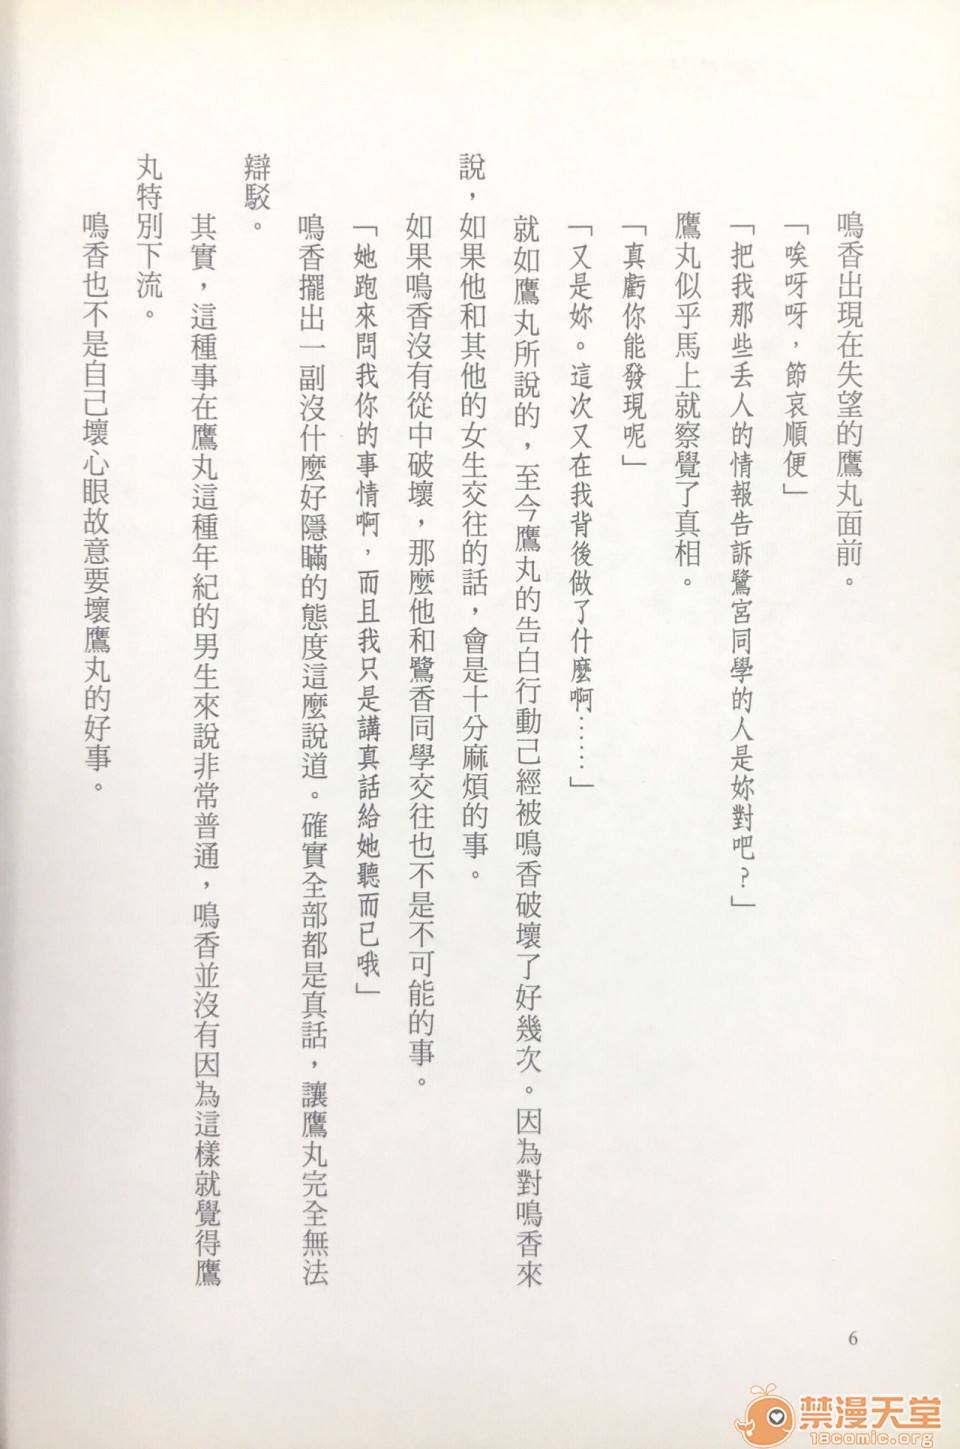 鳴香出現在失望的鷹丸面前。
「唉呀呀，節哀順便」
「把我那些丟人的情報告訴鷺宮同學的人是妳對吧？」
鷹丸似乎馬上就察覺了真相。
「真虧你能發現呢」
「又是妳。這次又在我背後做了什麼啊……」
就如鷹丸所說的，至今鷹丸的告白行動己經被鳴香破壞了好幾次。因為對鳴香來
說，如果他和其他的女生交往的話，會是十分麻煩的事。
如果鳴香沒有從中破壞，那麼他和鷺香同學交往也不是不可能的事。
「她跑來問我你的事情啊，而且我只是講真話給她聽而已哦」
鳴香擺出一副沒什麼好隱瞞的態度這麼說道。確實全部都是真話，讓鷹丸完全無法
辯駁。
其實，這種事在鷹丸這種年紀的男生來說非常普通，鳴香並沒有因為這樣就覺得鷹
丸特別下流。
鳴香也不是自己壞心眼故意要壞鷹丸的好事。
6
禁漫天堂
18comic.org